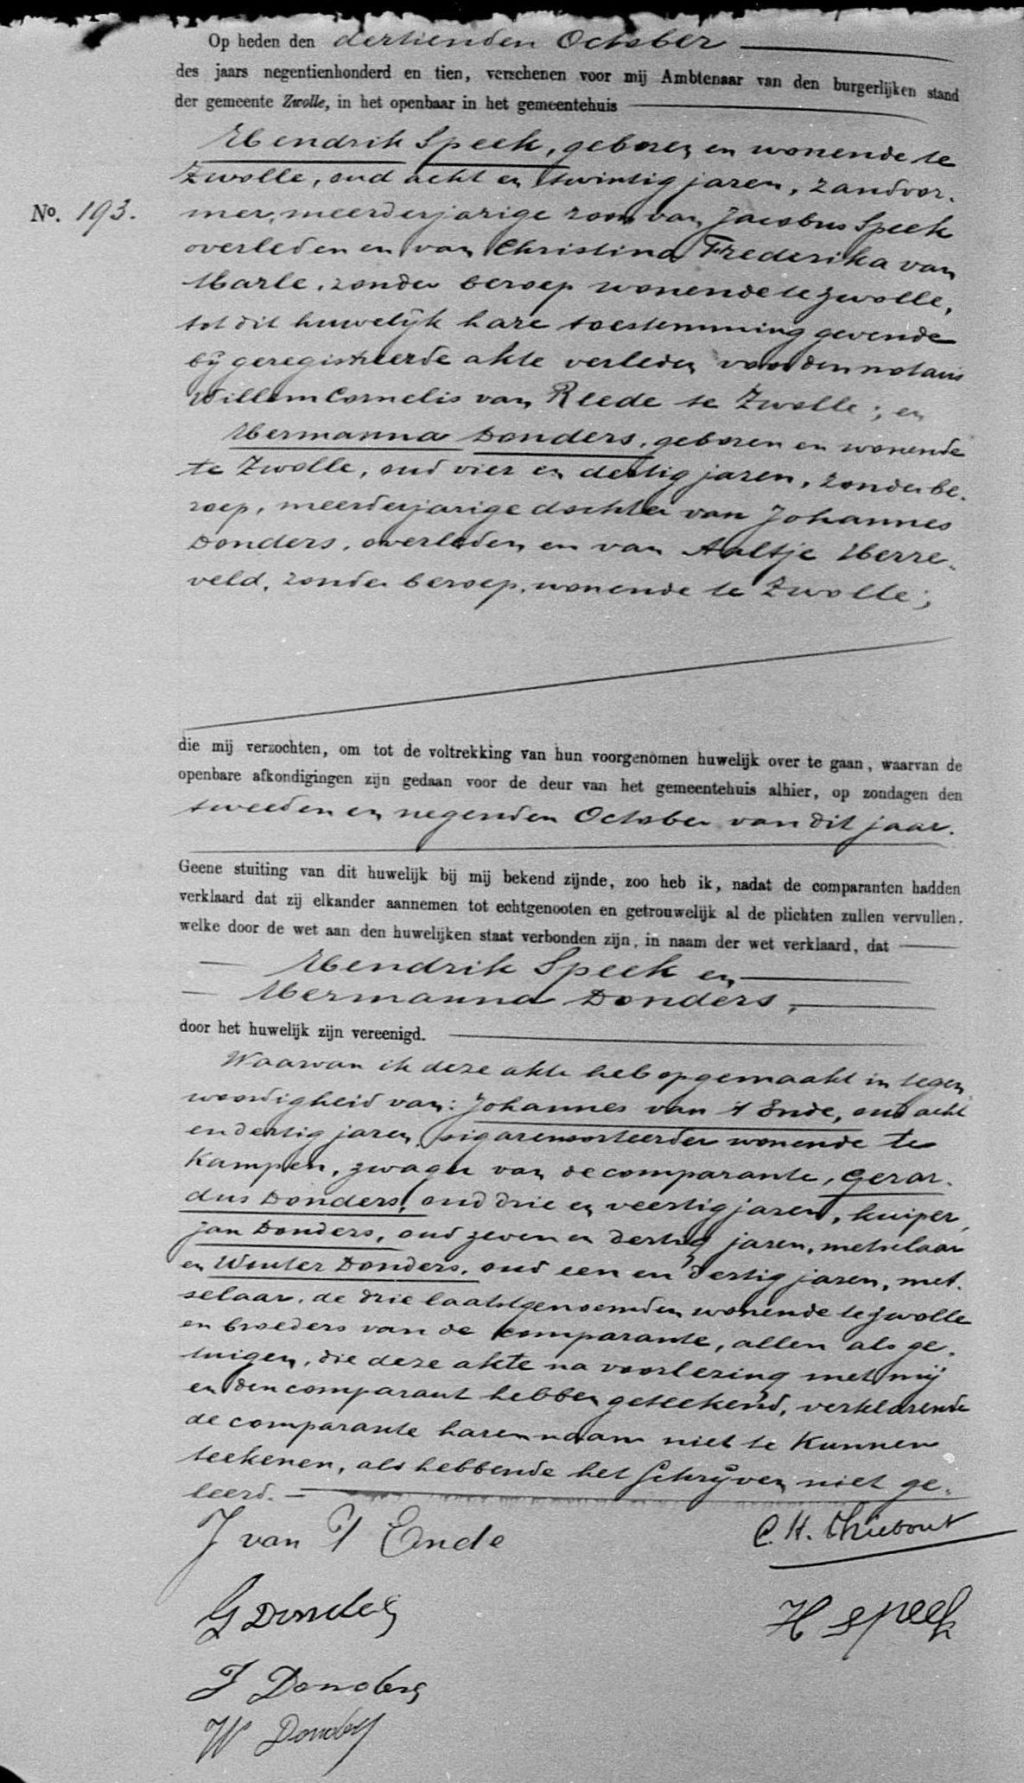 Op heden den dertienden October
des jaars negentienhonderd en tien, verschenen voor mij Ambtenaar van den burgerlijken stand
der gemeente Zwolle, in het openbaar in het gemeentehuis
Hendrik Speek, geboren en wonende te
Zwolle, oud acht en twintig jaren, zandvor-
No. 193.
mer, meerderjarige zoon van Jacobus Speek
overleden en van Christina Frederika van
Marle, zonder beroep wonende te Zwolle,
tot dit huwelijk hare toestemming gevende
bij geregistreerde akte verleden voor den notaris
Willem Cornelis van Reede te Zwolle; en
Hermanna Donders, geboren en wonende
te Zwolle, oud vier en dertig jaren, zonder be-
roep, meerderjarige dochter van Johannes
Donders, overleden en van Aaltje Herre-
veld, zonder beroep, wonende te Zwolle;
die mij verzochten, om tot de voltrekking van hun voorgenomen huwelijk over te gaan, waarvan de
openbare afkondigingen zijn gedaan voor de deur van het gemeentehuis alhier, op zondagen den
tweeden en negenden October van dit jaar.
Geene stuiting van dit huwelijk bij mij bekend zijnde, zoo heb ik, nadat de comparanten hadden
verklaard dat zij elkander aannemen tot echtgenooten en getrouwelijk al de plichten zullen vervullen,
welke door de wet aan den huwelijken staat verbonden zijn, in naam der wet verklaard, dat
Hendrik Speek en
Hermanna Donders,
door het huwelijk zijn vereenigd.
Waarvan ik deze akte heb opgemaakt in tegen
woordigheid van: Johannes van 't Ende, oud acht
en dertig jaren, sigarensorteerder wonende te
Kampen, zwager van de comparante, Gerar-
dus Donders, oud drie en veertig jaren, kuiper,
Jan Donders, oud zeven en dertig jaren, metselaar
en Wouter Donders, oud een en dertig jaren, met-
selaar, de drie laatstgenoemden wonende te Zwolle
en broeders van de comparante, allen als ge-
tuigen, die deze akte na voorlezing met mij
en den comparant hebben geteekend, verklarende
de comparante haren naam niet te kunnen
teekenen, als hebbende het schrijven niet ge-
leerd.
J van 't Ende
C. H. Thiebout
G Donders
H Speek
J Donders
W Donders